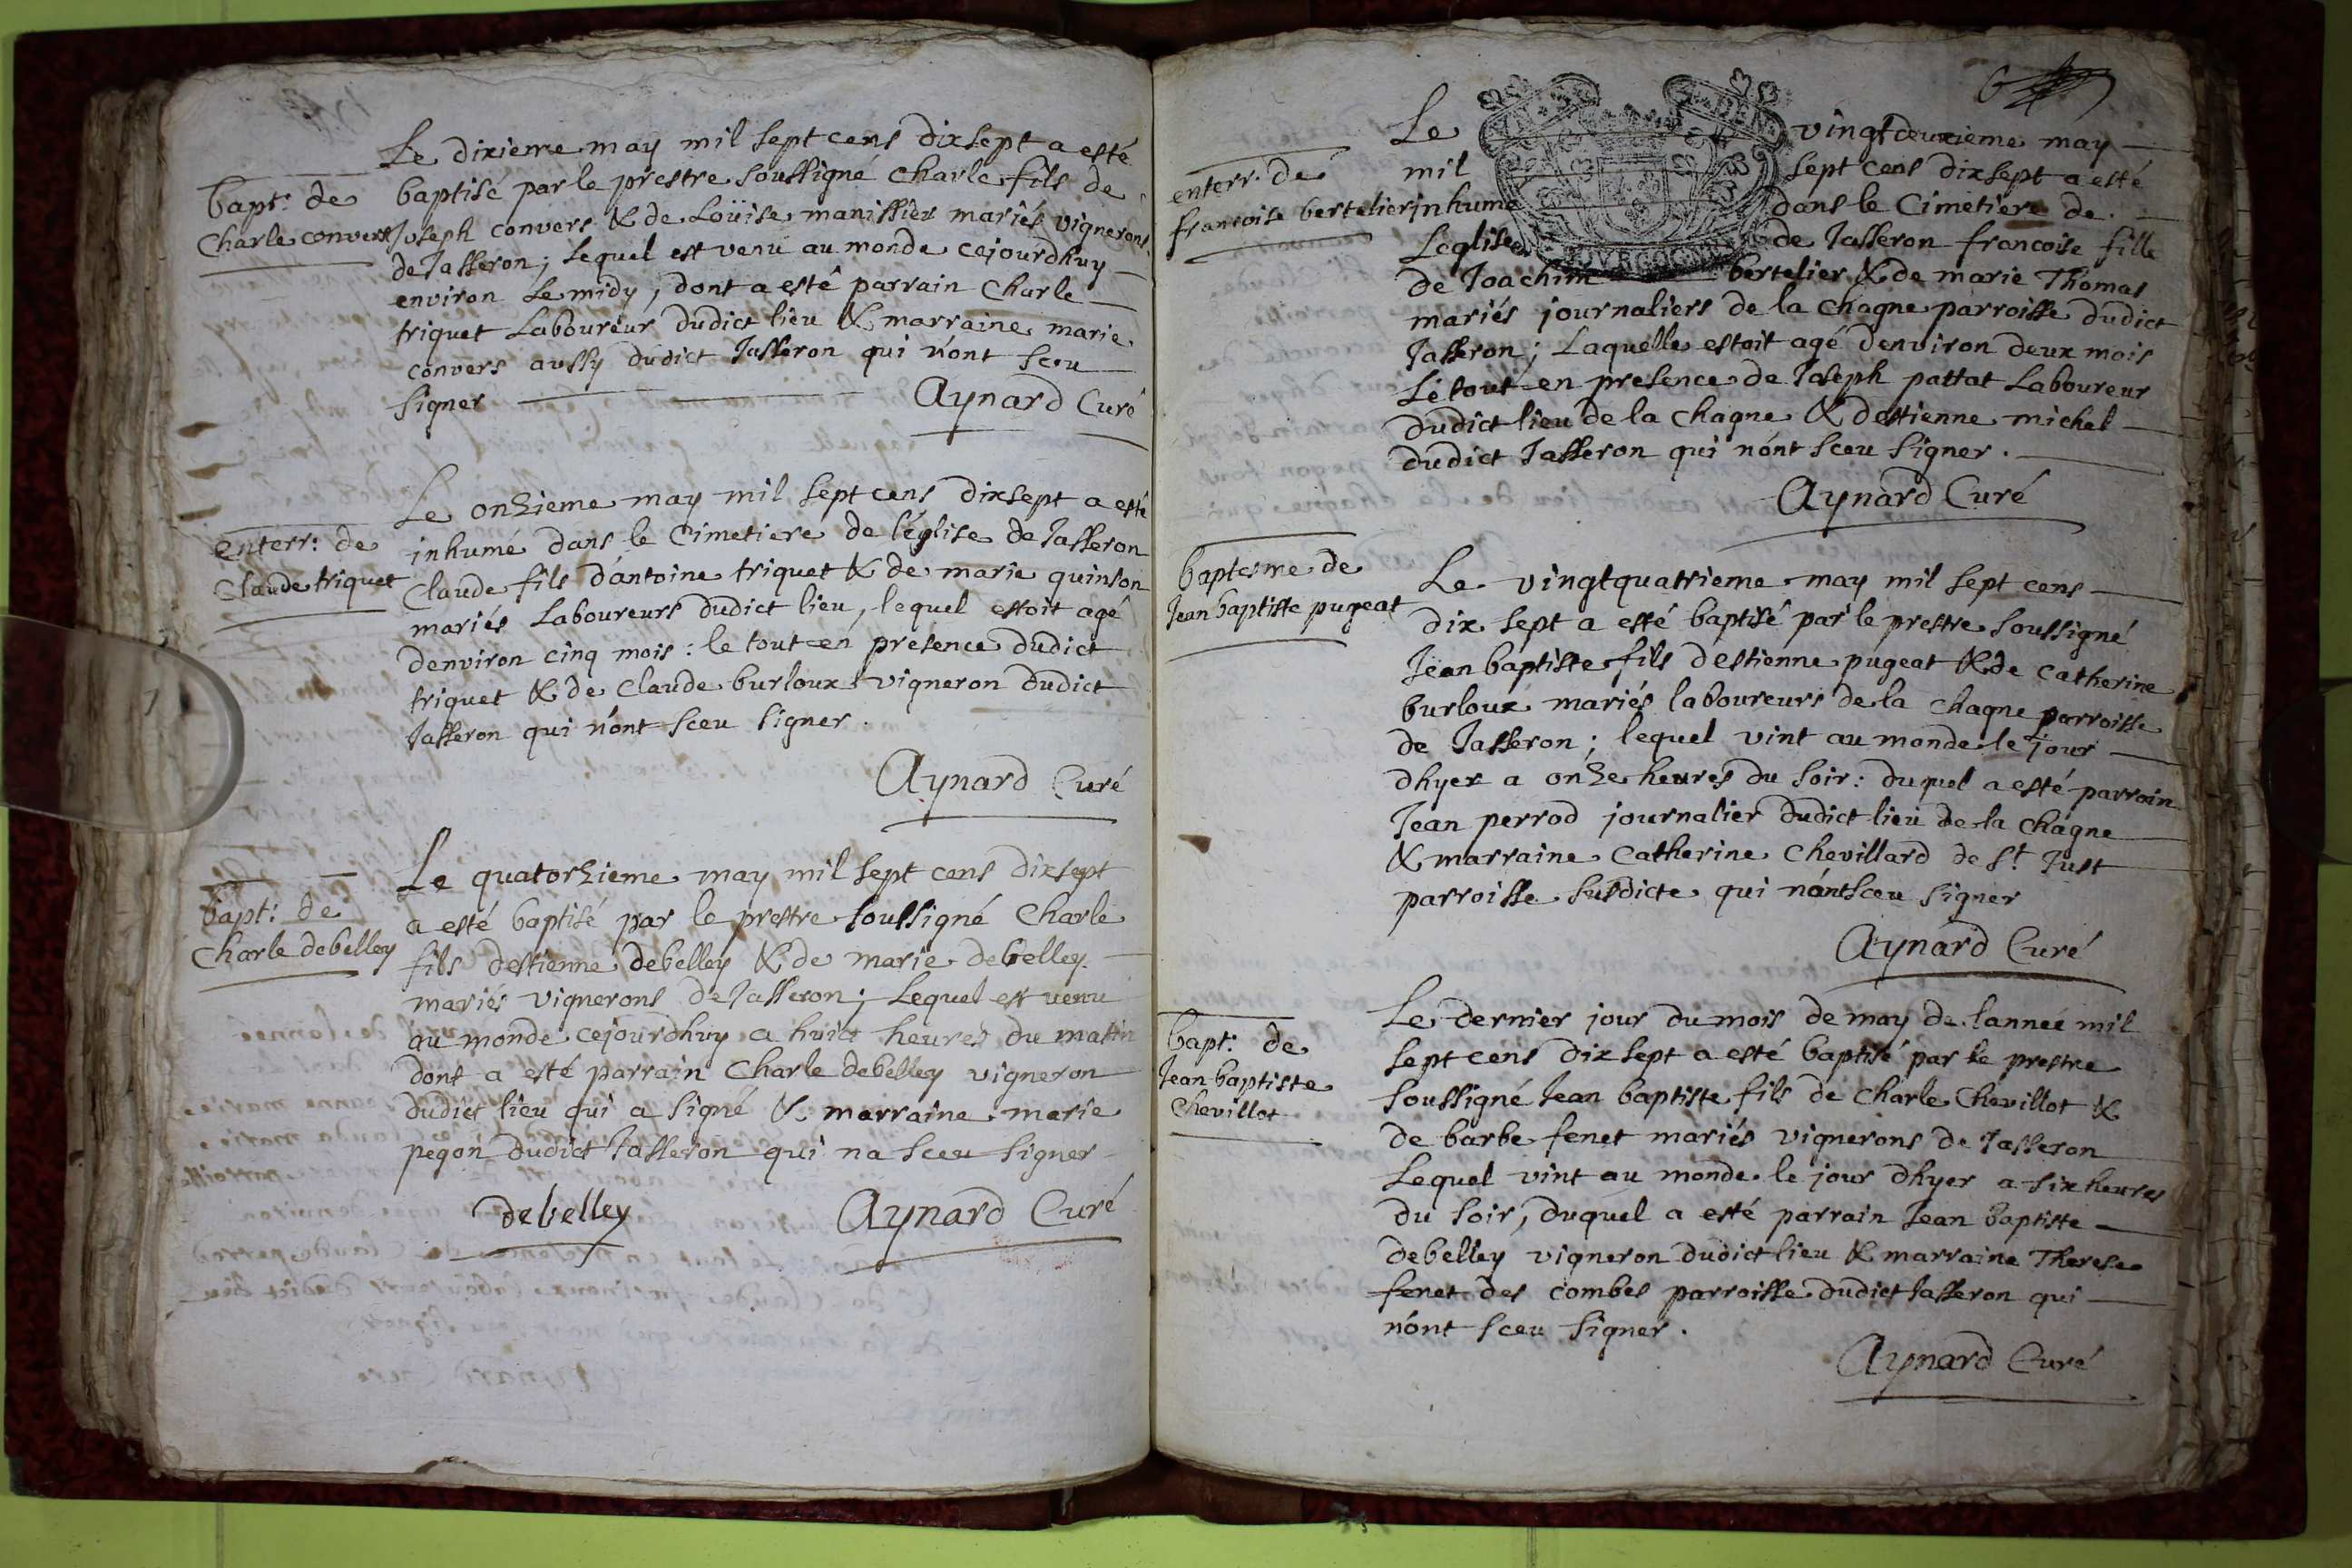 Le dixieme may mil sept cens dixsept a esté
bapt: de
Charle convers
baptisé par le prestre soussigné Charle fils de
Joseph convers & de Loüise manissier mariés vignerons
de Jasseron; lequel est venu au monde cejourdhuy
environ le midy, dont a esté parrain Charle
triquet Laboureur dudict lieu & marraine marie
convers aussy dudict Jasseron qui n'ont sceu
signer
Aynard Curé
enterr: de
Claude triquet
Le onzieme may mil sept cens dixsept a esté
inhumé dans le Cimetiere de l'église de Jasseron
Claude fils d'antoine triquet & de marie quinson
mariés Laboureurs dudict lieu, lequel estoit agé
denviron cinq mois: le tout en presence dudict
triquet & de Claude burloux vigneron dudict
Jasseron qui n'ont sceu signer.
Aynard Curé
bapt: de
Charle debelley
Le quatorzieme may mil sept cens dixsept
a esté baptisé par le prestre soussigné Charle
fils destienne debelley & de marie debelley
mariés vignerons de Jasseron; Lequel est venu
au monde cejourdhuy a huict heures du matin
dont a esté parrain Charle debelley vigneron
dudict lieu qui a signé & marraine marie
pegon dudict Jasseron qui na sceu signer
debelley Aynard Curé
6
enterr. de
francoise bertelier
Le vingtdeuxieme may
mil sept cens dixsept a esté
inhumé dans le Cimetiere de
Leglise de Jasseron francoise fille
BOURGOGNE
de Joachim bertelier & de marie Thomas
mariés journaliers de la chagne parroisse dudict
Jasseron; Laquelle estoit agé denviron deux mois
Le tout en presence de Joseph pattat Laboureur
dudict lieu de la chagne & destienne michel
dudict Jasseron qui n'ont sceu signer.
Aynard Curé
baptesme de
Jean baptiste pugeat
Le vingtquatrieme may mil sept cens
dix sept a esté baptisé par le prestre soussigné
Jean baptiste fils destienne pugeat & de catherine
burloux mariés laboureurs de la chagne parroisse
de Jasseron; lequel vint au monde le jour
dhyer a onze heures du soir: duquel a esté parroin
Jean perrod journalier dudict lieu de la chagne
& marraine Catherine Chevillard de St Just
parroisse susdicte qui n'ont sceu signer
Aynard Curé
bapt: de
Jean baptiste
Chevillot
Le dernier jour du mois de may de lanneé mil
sept cens dix sept a esté baptisé par le prestre
soussigné Jean baptiste fils de Charle Chevillot &
de barbe fenet mariés vignerons de Jasseron
Lequel vint au monde le jour dhyer a six heures
du soir, duquel a esté parrain Jean baptiste
debelley vigneron dudict lieu & marraine Therese
fenet des combes parroisse dudict Jasseron qui
n'ont sceu signer.
Aynard Curé